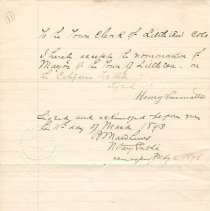 To the Town Clerk of Littleton Colo
I hereby accept the nomination of
Mayor of the Town of Littleton on
the Citizens Ticket
Signed
Henry
Signed and acknowledged before me
the 11th day of March 1893
Notary Public